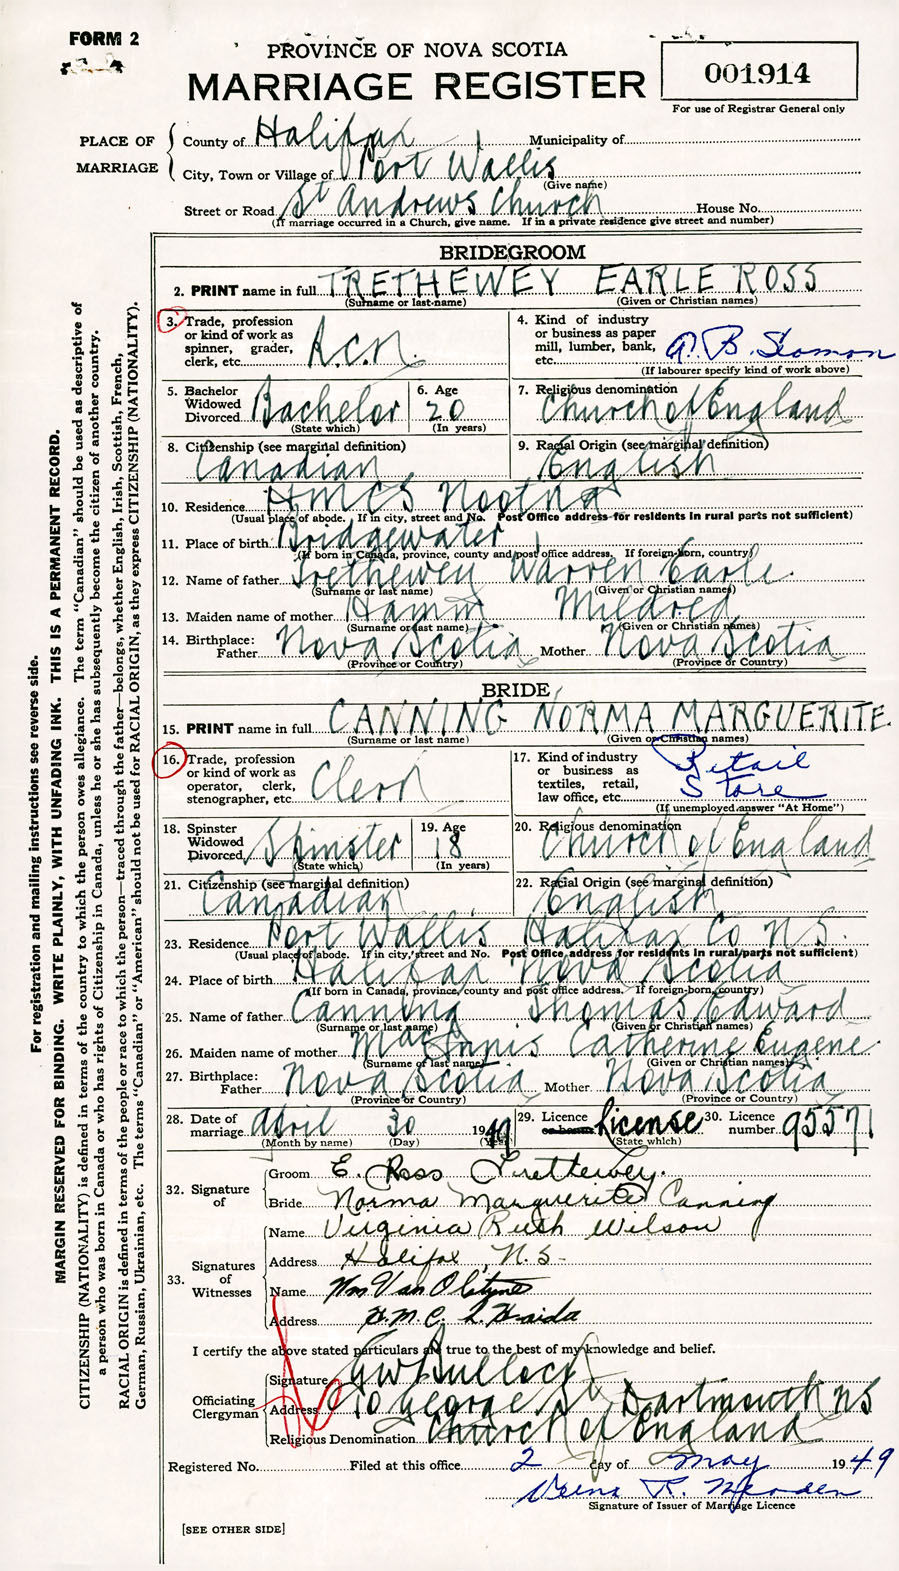 FORM 2
PROVINCE OF NOVA SCOTIA
MARRIAGE REGISTER
001914
For use of Registrar General only
PLACE OF MARRIAGE
County of Halifax Municipality of
City, Town or Village of Port Wallis
(Give name)
Street or Road St Andrews Church House No.
(If marriage occurred in a Church, give name. If in a private residence give street and number)
BRIDEGROOM
2. PRINT name in full TRETHEWEY EARLE ROSS
(Surname or last name) (Given or Christian names)
3. Trade, profession
or kind of work as
spinner, grader,
clerk, etc. R.C.N.
4. Kind of industry
or business as paper
mill, lumber, bank,
etc. A. B. Seaman
(If labourer specify kind of work above)
5. Bachelor
Widowed
Divorced Bachelor
(State which)
6. Age
20
(In years)
7. Religious denomination
Church of England
8. Citizenship (see marginal definition)
Canadian
9. Racial Origin (see marginal definition)
English
10. Residence HMCS Nootna
(Usual place of abode. If in city, street and No. Post Office address for residents in rural parts not sufficient)
11. Place of birth Bridgewater
(If born in Canada, province, county and post office address. If foreign-born, country)
12. Name of father Trethewey Warren Earle
(Surname or last name) (Given or Christian names)
13. Maiden name of mother Hamm Mildred
(Surname or last name) (Given or Christian names)
14. Birthplace:
Father Nova Scotia Mother Nova Scotia
(Province or Country) (Province or Country)
BRIDE
15. PRINT name in full CANNING NORMA MARGUERITE
(Surname or last name) (Given or Christian names)
16. Trade, profession
or kind of work as
operator, clerk,
stenographer, etc. Clerk
17. Kind of industry
or business as
textiles, retail,
law office, etc. Retail
Store
(If unemployed answer "At Home")
18. Spinster
Widowed
Divorced Spinster
(State which)
19. Age
18
(In years)
20. Religious denomination
Church of England
21. Citizenship (see marginal definition)
Canadian
22. Racial Origin (see marginal definition)
English
23. Residence Port Wallis Halifax Co N.S.
(Usual place of abode. If in city, street and No. Post Office address for residents in rural parts not sufficient)
24. Place of birth Halifax Nova Scotia
(If born in Canada, province, county and post office address. If foreign-born, country)
25. Name of father Canning Thomas Edward
(Surname or last name) (Given or Christian names)
26. Maiden name of mother MacInnis Catherine Eugene
(Surname or last name) (Given or Christian names)
27. Birthplace:
Father Nova Scotia Mother Nova Scotia
(Province or Country) (Province or Country)
28. Date of
marriage April 30 1949
(Month by name) (Day) (Year)
29. Licence
or banns License
(State which)
30. Licence
number 95571
32. Signature of
Groom E. Ross Trethewey.
Bride Norma Marguerite Canning
33. Signatures of Witnesses
Name Virginia Ruth Wilson
Address Halifax, N.S.
Name Wm Van
Address H.M.C.S. Haida
I certify the above stated particulars are true to the best of my knowledge and belief.
Officiating Clergyman
Signature GW Bullock
Address 10 George St Dartmouth NS
Religious Denomination Church of England
Registered No. Filed at this office 2 day of May 1949
Verna R.
Signature of Issuer of Marriage Licence
[SEE OTHER SIDE]
For registration and mailing instructions see reverse side.
MARGIN RESERVED FOR BINDING. WRITE PLAINLY, WITH UNFADING INK. THIS IS A PERMANENT RECORD.
CITIZENSHIP (NATIONALITY) is defined in terms of the country to which the person owes allegiance. The term "Canadian" should be used as descriptive of
a person who was born in Canada or who has rights of Citizenship in Canada, unless he or she has subsequently become the citizen of another country.
RACIAL ORIGIN is defined in terms of the people or race to which the person—traced through the father—belongs, whether English, Irish, Scottish, French,
German, Russian, Ukrainian, etc. The terms "Canadian" or "American" should not be used for RACIAL ORIGIN, as they express CITIZENSHIP (NATIONALITY).